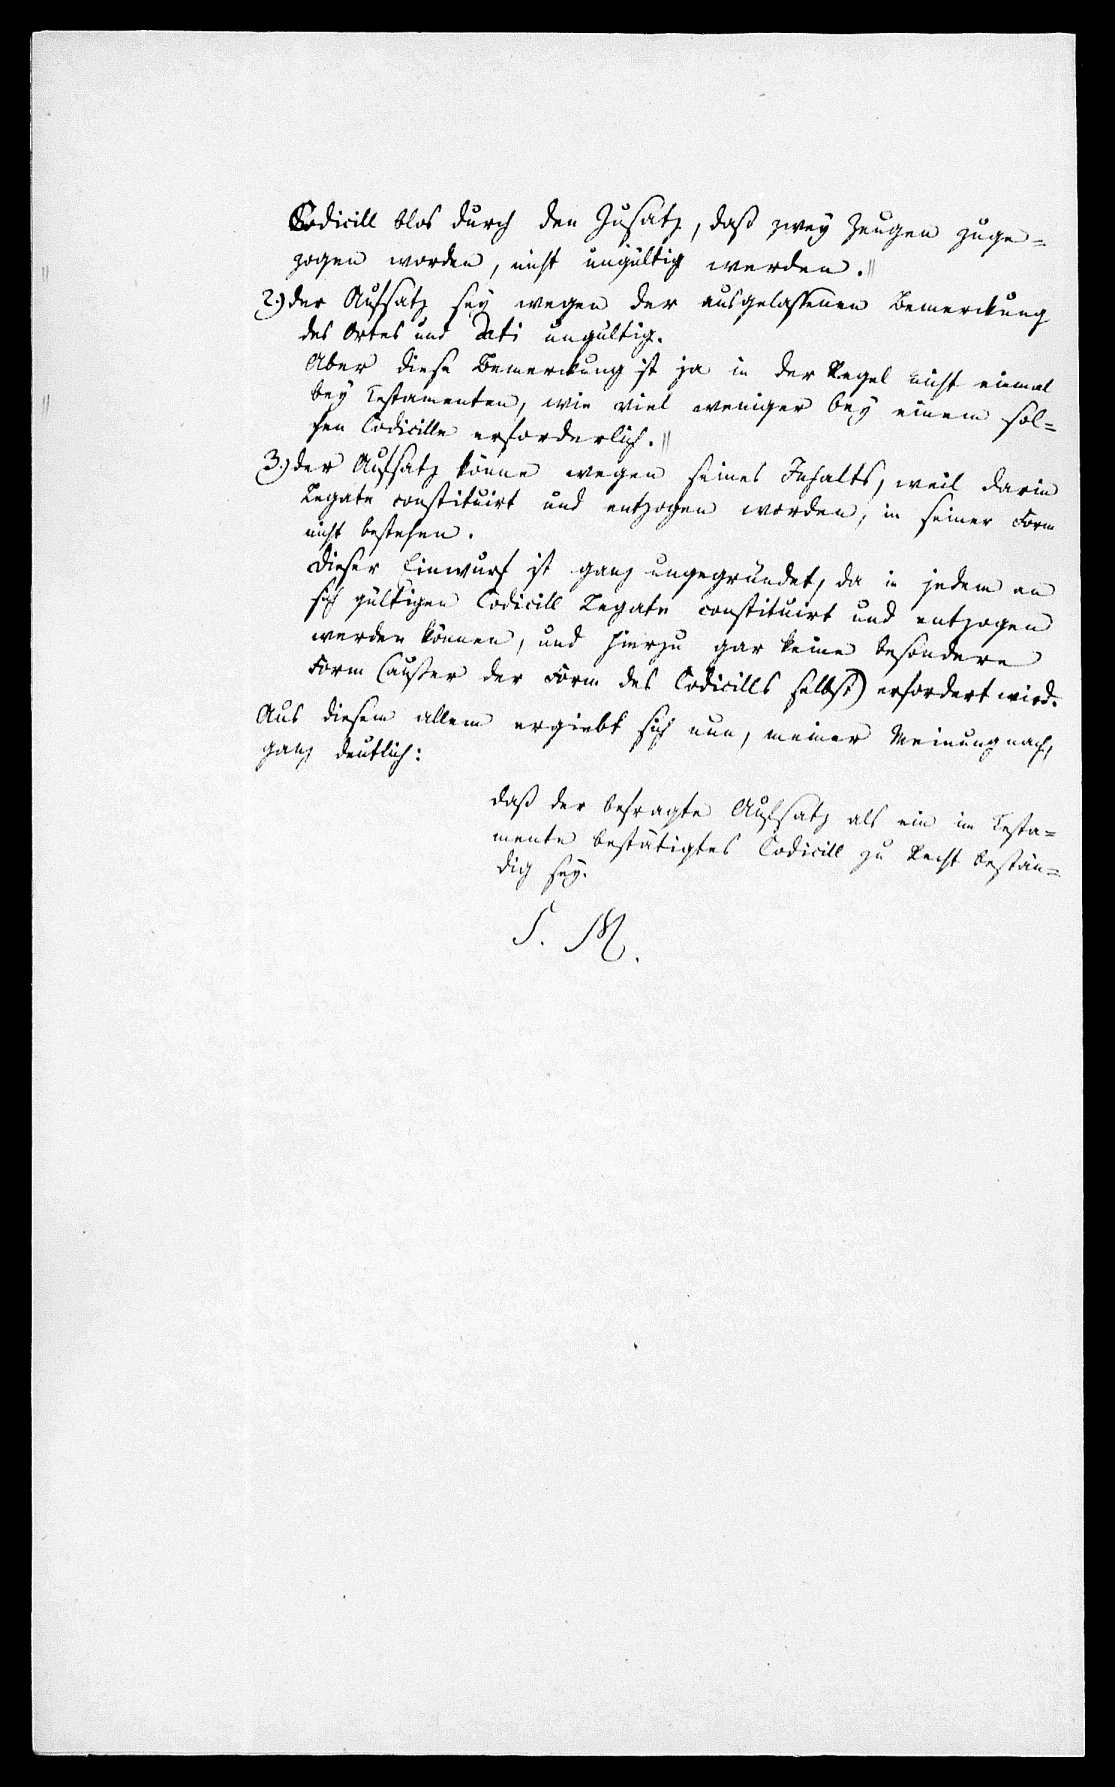 Codicill blos durch den Zusatz, daß zwey Zeugen zuge=
zogen worden, nicht ungültig werden. ||
2.) der Aufsatz sey wegen der ausgelassenen Bemerckung
des Ortes und Dati ungültig.
Aber diese Bemerckung ist ja in der Regel nicht einmal
bey Testamenten, wie viel weniger bey einem sol=
chen Codicille erforderlich. ||
3.) der Aufsatz könne wegen seines Inhalts, weil darin
Legate constituirt und entzogen worden, in seiner Form
nicht bestehen.
Dieser Einwurf ist ganz ungegründet, da in jedem an
sich gültigen Codicill Legate constituirt und entzogen
werden können, und hierzu gar keine besondere
Form (außer der Form des Codicills selbst) erfordert wird.
Aus diesem allem ergiebt sich nun, meiner Meinung nach,
ganz deutlich:
daß der befragte Aufsatz als ein im Testa=
mente bestätigtes Codicill zu Recht bestän=
dig sey.
S. M.